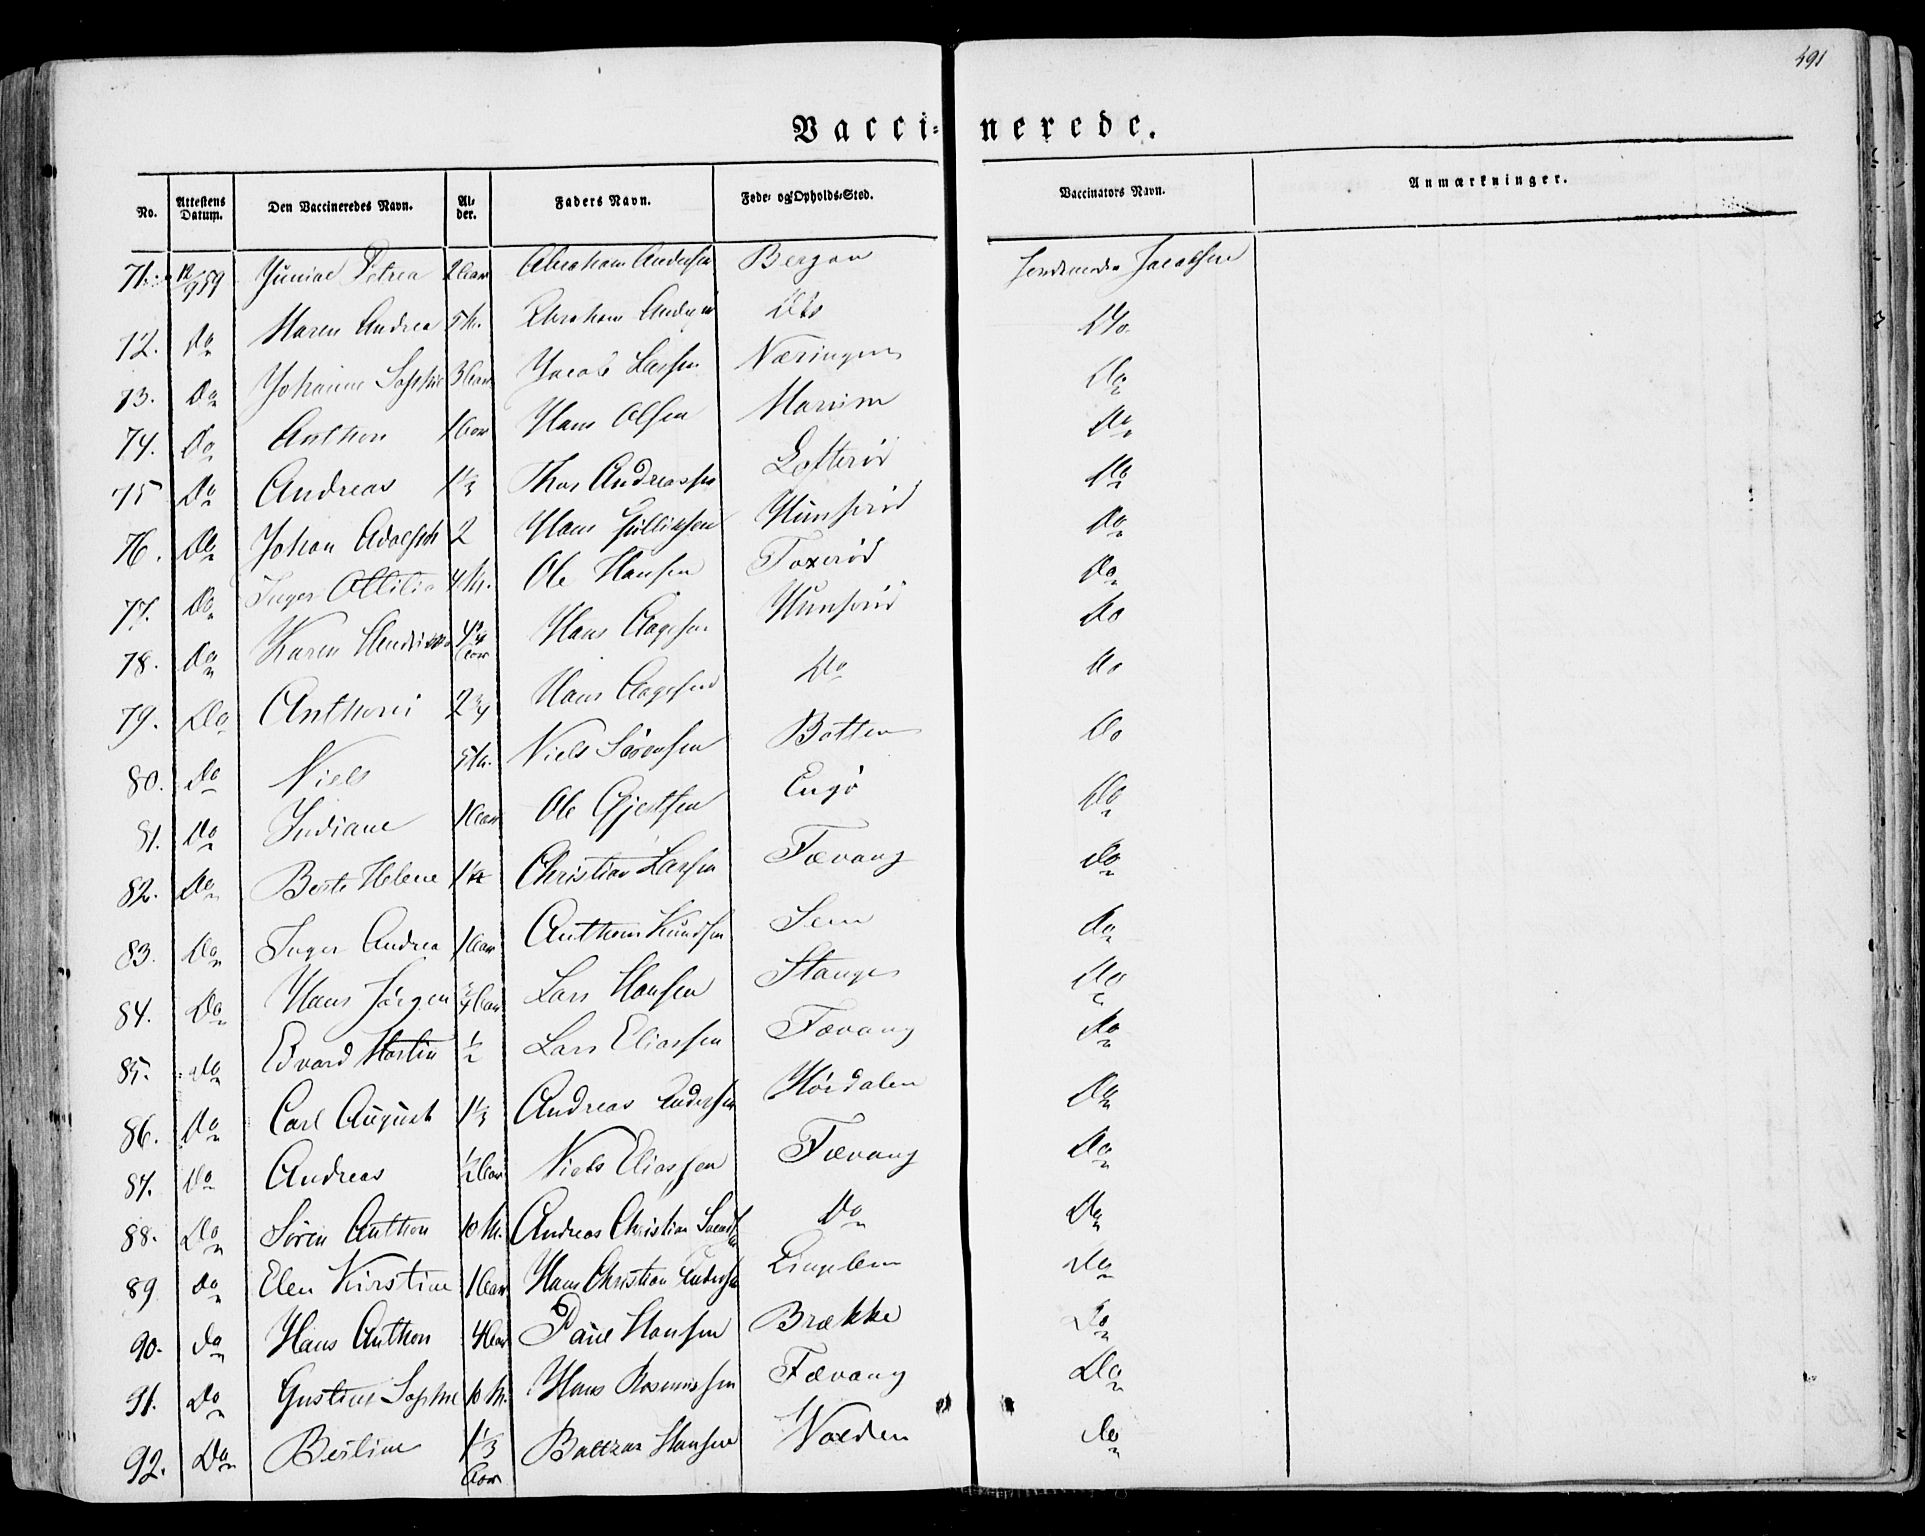 491
Vacci- nerede.
No. Attestens Datum. Den Vaccineredes Navn. Al- der. Faders Navn. Føde- og Opholds-Sted. Vaccinators Navn. Anmærkninger.
71. 12/9 59 Petrea 2 Aar Abraham Andersen Bergan Jacobsen
72. Do Maren Andrea 5 M. Abraham Do
73. Do Johanne Sophie 3 Aar Jacob Larsen Næringen Do
74. Do Anthon 1 Aar Hans Olsen Marum Do
75 Do Andreas 1 1/3 Thor Andreassen Lofterød Do
76. Do Johan Adolph 2 Hans Gulliksen Hunsrød Do
77. Do Inger Ottilia 4 M. Ole Hansen Foxerød Do
78. Do Karen Aar Hans Aagesen Hunsrød Do
79. Do Anthoni 2 3/4 Hans Aagesen Do Do
80. Do Niels 5 M. Niels Sørensen Botten Do
81. Do Indiane 1 Aar Ole Gjertsen Engø Do
82. Do Berte Helene 1 1/2 Christian Larsen Fævang Do
83. Do Inger Andrea 1 Aar Anthon Knudsen Sem Do
84. Do Hans Jørgen 3/4 Aar Lars Hansen Stange Do
85. Do Edvard Martin 1/2 Lars Eliassen Fævang Do
86. Do Carl August 1 1/3 Andreas Andersen Hørdalen Do
87. Do Andreas 1/2 Aar Niels Eliassen Fævang Do
88. Do Søren Anthon 10 M. Andreas Christian Do Do
89 Do Elen Kirstine 1 Aar Hans Christian Andersen Lingelem Do
90. Do Hans Anthon 4 Aar Paul Hansen Brække Do
91. Do Gustine Sophie 10 M. Hans Rasmussen Fævang Do
92. Do Bertine 1 1/3 Aar Baltzar Hansen Volden Do